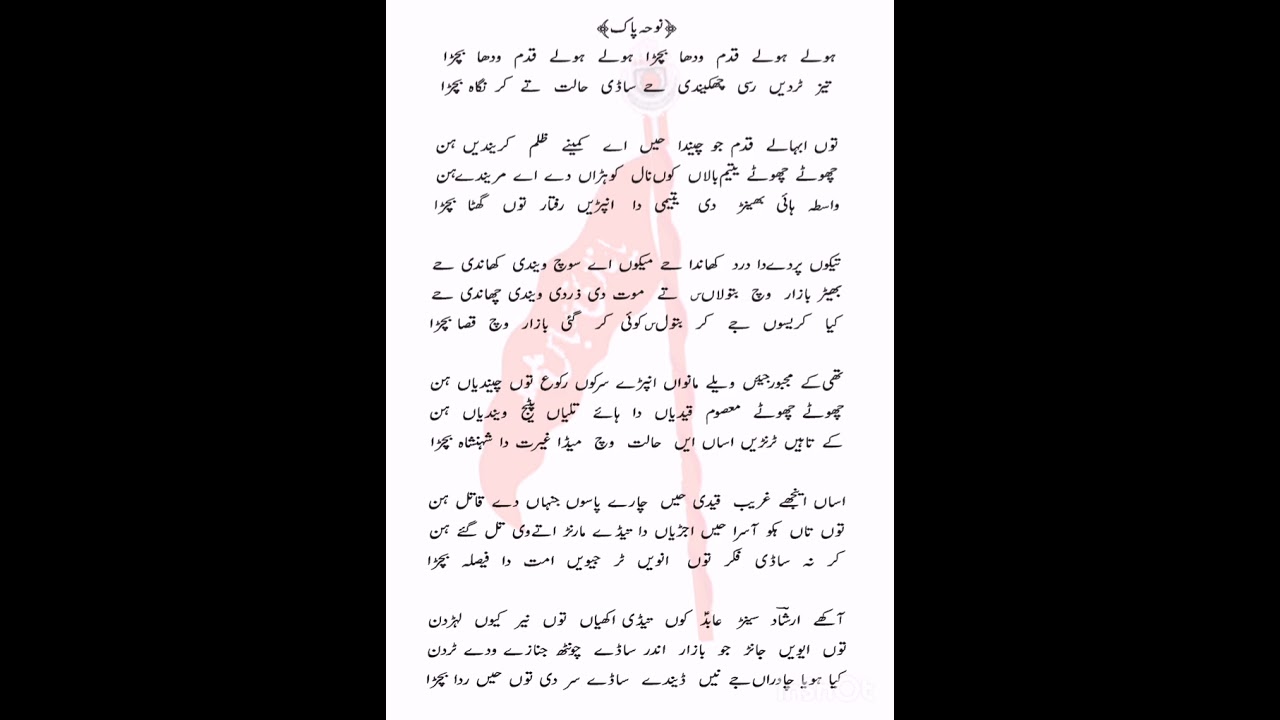 ﴿نوحہ پاک﴾
ہولے ہولے قدم ودھا بچڑا ہولے ہولے قدم ودھا بچڑا
تیز ٹردیں رسی چھکیندی ہے ساڈی حالت تے کر نگاہ بچڑا
توں ابہالے قدم جو چیندا حیں اے کمینے ظلم کریندیں ہن
چھوٹے چھوٹے یتیم بالاں کوں نال کوہڑاں دے اے مریندے ہن
واسطہ ہائی بھینڑ دی یتیمی دا انپڑیں رفتار توں گھٹا بچڑا
تیکوں پردے دا درد کھاندا حے میکوں اے سوچ ویندی کھاندی حے
بھیڑ بازار وچ بتولاںس تے موت دی ذردی ویندی چھاندی حے
کیا کریسوں جے کر بتولس کوئی کر گئی بازار وچ قصا بچڑا
تھی کے مجبور جیئں ویلے مانواں انپڑے سرکوں رکوع توں چیندیاں ہن
چھوٹے چھوٹے معصوم قیدیاں دا ہائے تلیاں پٹیج ویندیاں ہن
کے تاہیں ٹرنڑیں اساں ایں حالت وچ میڈا غیرت دا شہنشاہ بچڑا
اساں اینجھے غریب قیدی حیں چارے پاسوں جنہاں دے قاتل ہن
توں تاں ہکو آسرا حیں اجڑیاں دا تیڈے مارنڑ اتے وی تل گئے ہن
کر نہ ساڈی فکر توں انویں ٹر جیویں امت دا فیصلہ بچڑا
آکھے ارشاد سینڑ عابدؑ کوں تیڈی اکھیاں توں نیر کیوں لہڑدن
توں ایویں جانڑ جو بازار اندر ساڈے چونٹھ جنازے ودے ٹردن
کیا ہویا چادراں جے نیں ڈیندے ساڈے سر دی توں حیں ردا بچڑا